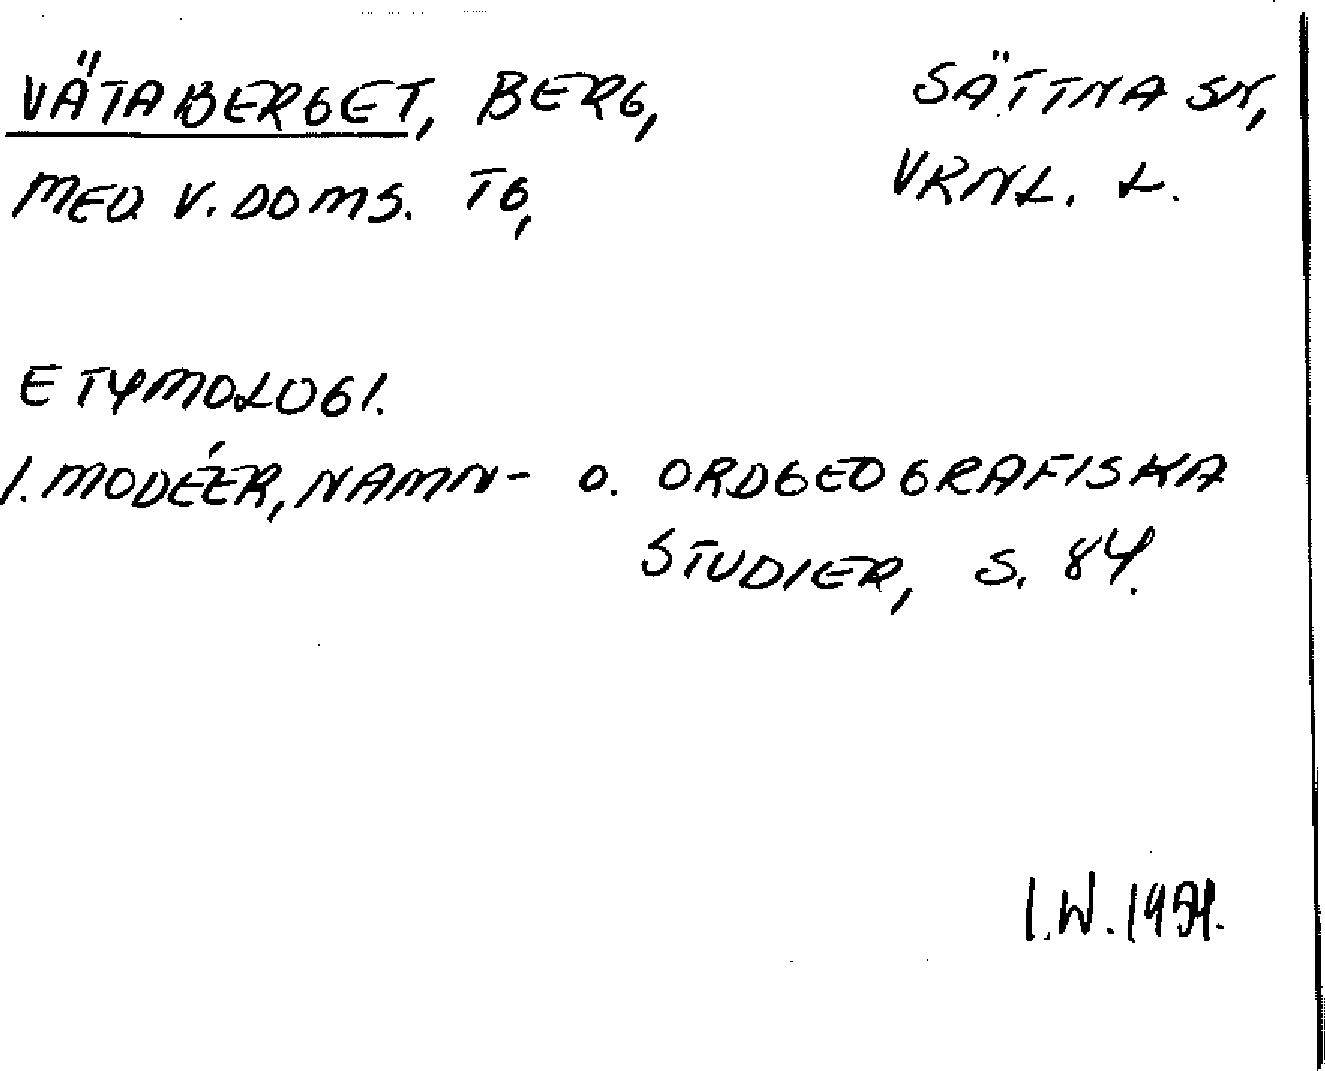 VÄTABERGET, BERG, SÄTTNA SN,
MED. V. DOMS. TG, VRML. L.
ETYMOLOGI.
I. MODÉER, NAMN- O. ORDGEOGRAFISKA
STUDIER, S. 84.
I.W.